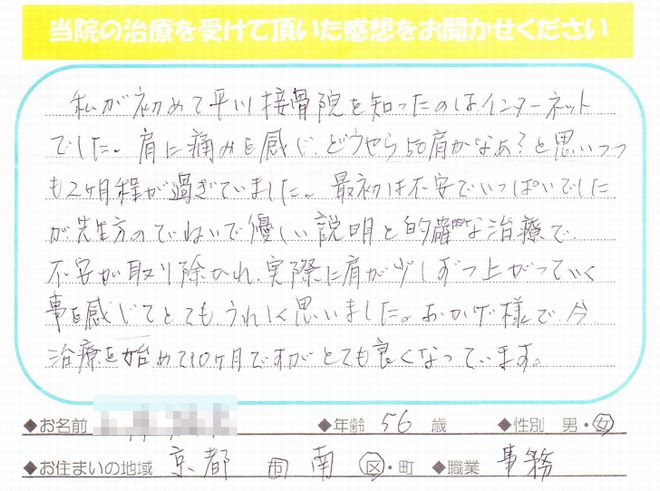 当院の治療を受けて頂いた感想をお聞かせください
私が初めて平川接骨院を知ったのはインターネット
でした。肩に痛みを感じ、どうやら50肩かなぁ?と思いつつ
も2ヶ月程が過ぎていました。最初は不安でいっぱいでした
が先生方のていねいで優しい説明と的確な治療で
不安が取り除かれ、実際に肩が少しずつ上がっていく
事を感じてとてもうれしく思いました。おかげ様で今
治療を始めて10ヶ月ですがとても良くなっています。
◆お名前 ◆年齢 56 歳 ◆性別 男・女
◆お住まいの地域 京都 市 南 区・町 ◆職業 事務